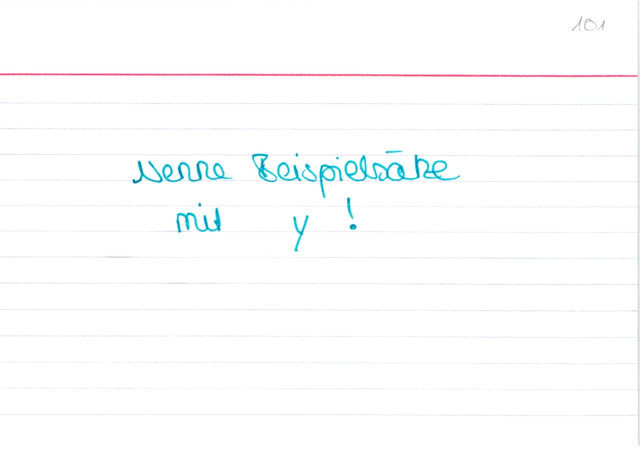 101
Nenne Beispielsätze
mit y !